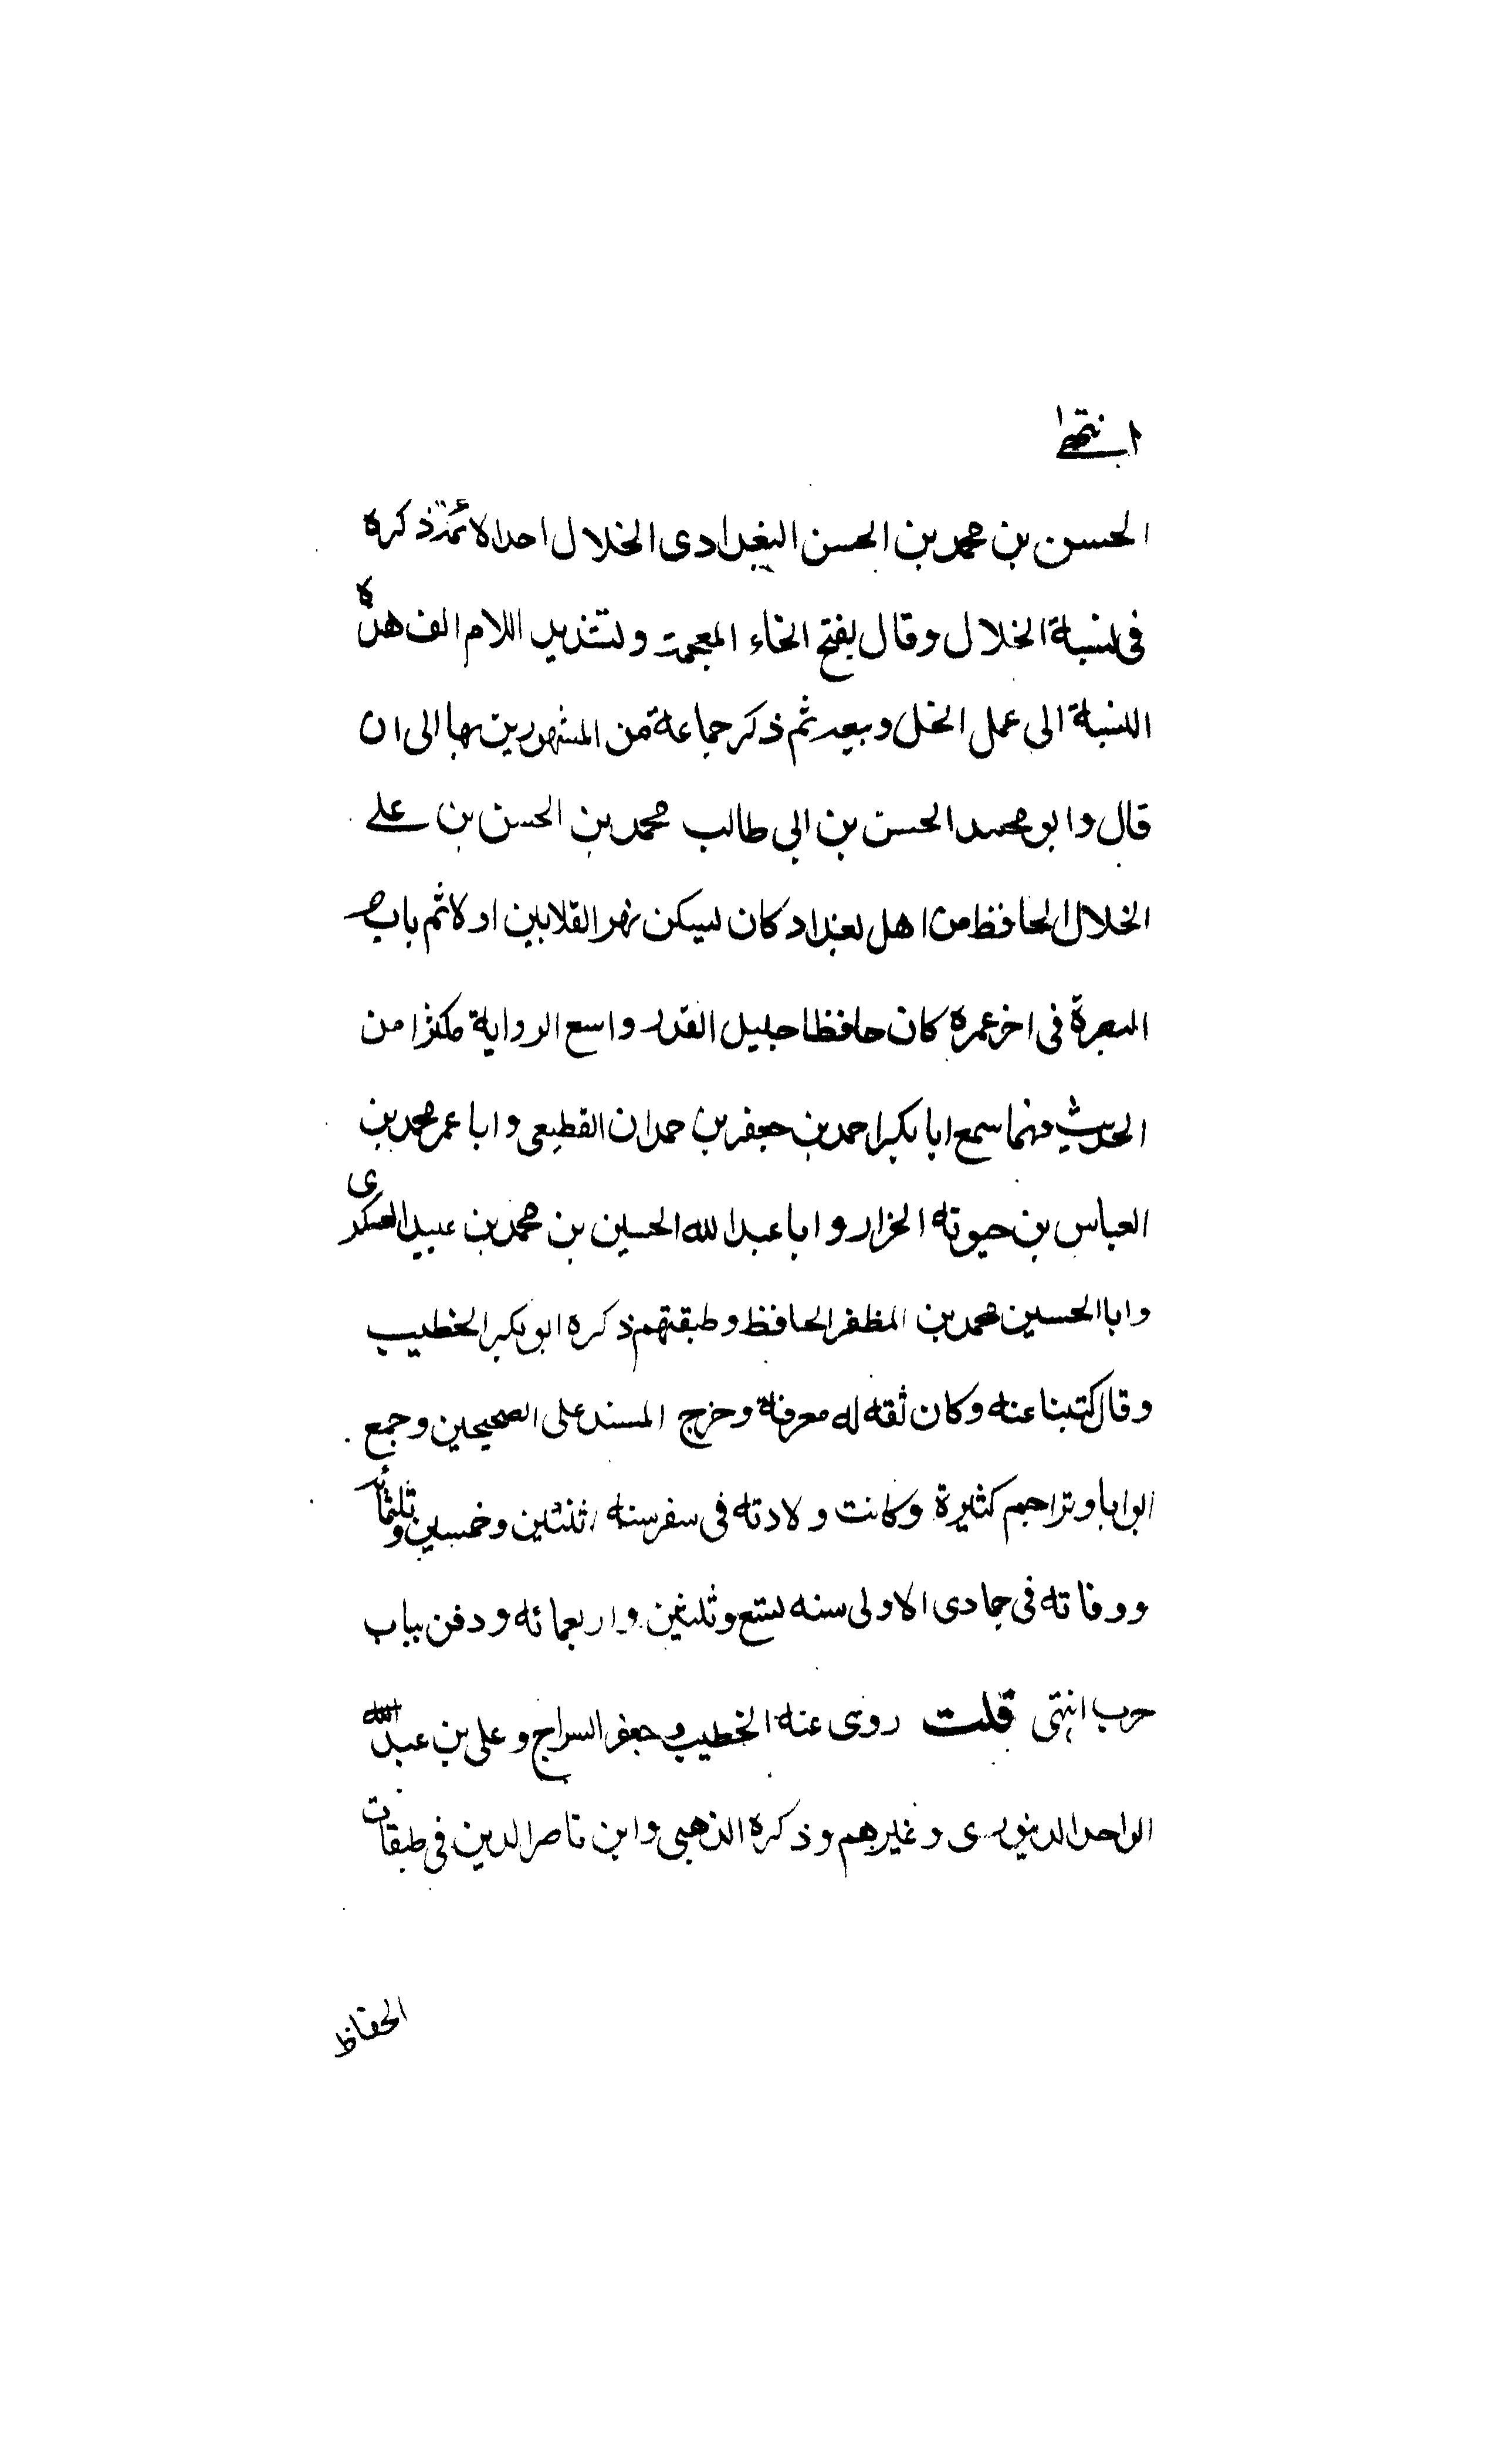 انتهى
الحسن بن محمد بن الحسن البغدادى الخلال احد الائمة ذكره
فى نسبة الخلال وقال بفتح الخاء المعجمة وتشديد اللام الف هذه
النسبة الى عمل الخل وبيعه ثم ذكر جماعة من المشهورين بها الى ان
قال وابو محمد الحسن بن ابى طالب محمد بن الحسن بن على
الخلال الحافظ من اهل بغداد كان يسكن نهر القلابين اولا ثم باب
البصرة فى اخر عمره كان حافظا جليل القدر واسع الرواية مكثرا من
الحديث فهما سمع ابا بكر احمد بن جعفر بن حمدان القطيعى وابا عمر محمد بن
العباس بن حيوته الخزاز وابا عبد الله الحسين بن محمد بن عبيد العسكرى
وابا الحسين محمد بن المظفر الحافظ وطبقتهم ذكره ابو بكر الخطيب
وقال كتبنا عنه وكان ثقه له معرفة وخرج المسند على الصحيحين وجمع
ابوابا وتراجم كثيرة وكانت ولادته فى سفر سنه اثنتين وخمسين وثلثمائه
ووفاته فى جمادى الاولى سنه تسع وثلثين واربعمائه ودفن بباب
حرب انتهى قلت روى عنه الخطيب وجعفر السراج وعلى بن عبد الله
الواحد الدينورى وغيرهم وذكره الذهبى وابن ناصر الدين فى طبقات
الحفاظ